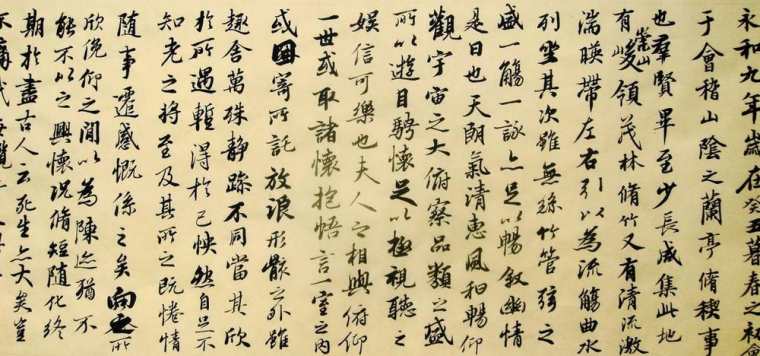 永和九年歲在癸丑暮春之初會
于會稽山陰之蘭亭脩稧事
也羣賢畢至少長咸集此地
有崇山峻領茂林脩竹又有清流激
湍暎帶左右引以為流觴曲水
列坐其次雖無絲竹管弦之
盛一觴一詠亦足以暢敘幽情
是日也天朗氣清惠風和暢仰
觀宇宙之大俯察品類之盛
所以遊目騁懷足以極視聽之
娛信可樂也夫人之相與俯仰
一世或取諸懷抱悟言一室之內
或因寄所託放浪形骸之外雖
趣舍萬殊靜躁不同當其欣
於所遇蹔得於己怏然自足不
知老之將至及其所之既惓情
隨事遷感慨係之矣向之所
欣俛仰之閒以為陳迹猶不
能不以之興懷況脩短隨化終
期於盡古人云死生亦大矣豈